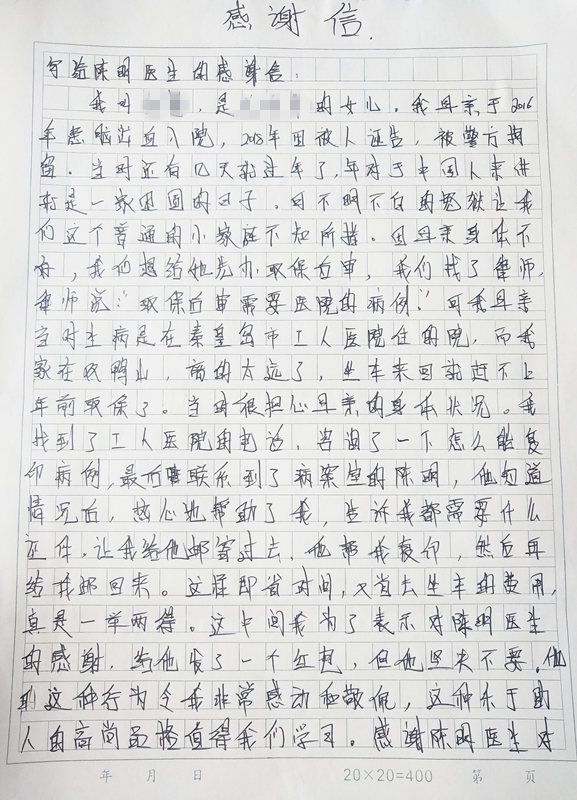 感谢信.
写给陈明医生的感谢信：
我叫，是的女儿。我母亲于2016
年患脑出血入院，2018年因被人诬告，被警方拘
留。当时还有几天就过年了，年对于中国人来讲
就是一家团圆的日子。因不明不白的冤狱让我
们这个普通的小家庭不知所措。因母亲身体不
好，我们想给他先办取保后审，我们找了律师，
律师说：“取保后审需要医院的病例！”可我母亲
当时生病是在秦皇岛市工人医院住的院，而我
家在双鸭山，离的太远了，坐车来回就赶不上
年前取保了。当时很担心母亲的身体状况。我
找到了工人医院的电话，咨询了一下怎么能复
印病例，最后联系到了病案室的陈明，他知道
情况后，热心地帮助了我，告诉我都需要什么
证件，让我给他邮寄过去，他帮我复印，然后再
给我邮回来。这样即省时间，又省去坐车的费用，
真是一举两得。这中间我为了表示对陈明医生
的感谢，给他发了一个红包，但他坚决不要，他
这种行为令我非常感动和敬佩，这种乐于助
人的高尚品格值得我们学习。感谢陈明医生对
年 月 日 20×20=400 第 页